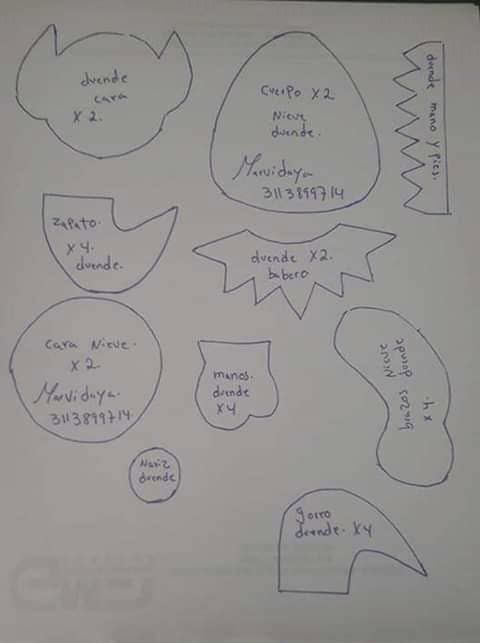 duende
cara
x 2.
Cuerpo x2
Nieve
duende.
Marvidaya
3113899714
duende mano y pies.
Zapato.
x 4.
duende.
duende x2.
babero
Cara Nieve.
x 2.
Marvidaya
3113899714
manos.
duende
x4
brazos Nieve
duende
x 4.
Nariz
duende
gorro
duende. x4